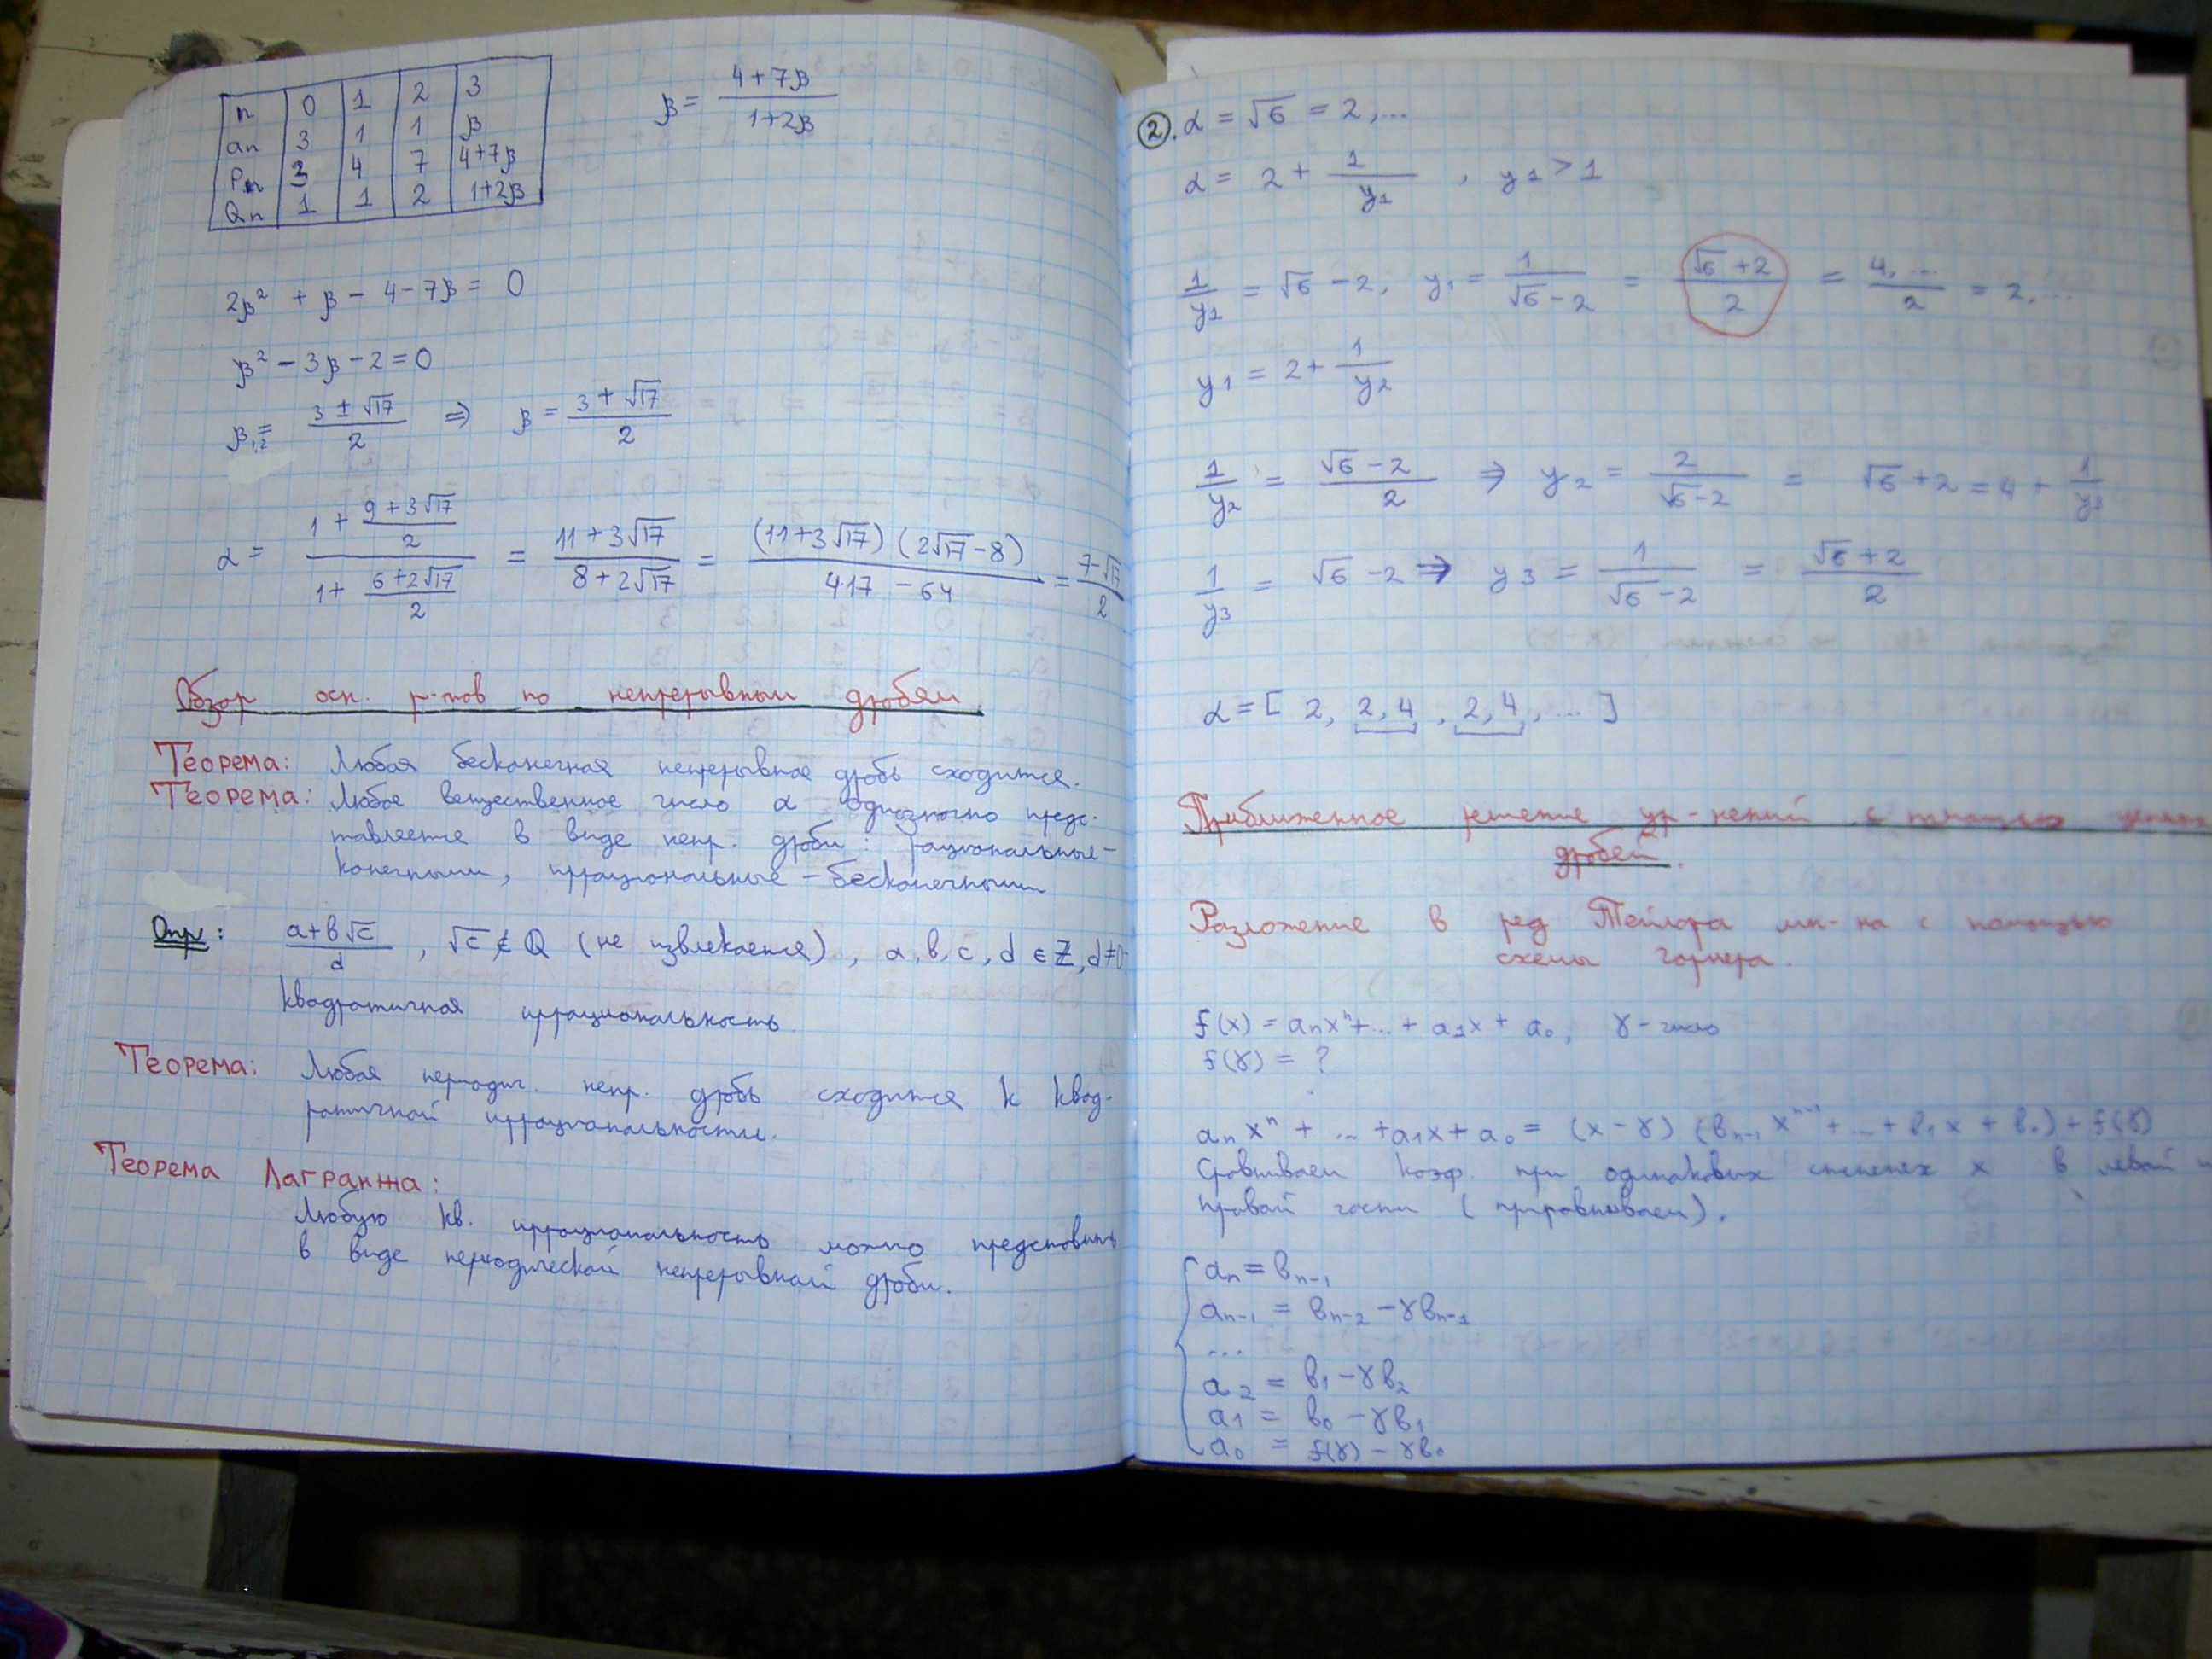 n 0 1 2 3
an 3 1 1 β
Pn 3 4 7 4+7β
Qn 1 1 2 1+2β
β = (4+7β)/(1+2β)
2β² + β − 4 − 7β = 0
β² − 3β − 2 = 0
β₁,₂ = (3 ± √17)/2 ⇒ β = (3 + √17)/2
α = (1 + (9+3√17)/2)/(1 + (6+2√17)/2) = (11+3√17)/(8+2√17) = ((11+3√17)(2√17−8))/(4·17 − 64) = (7−√17)/2
Обзор осн. р-тов по непрерывным дробям
Теорема: Любая бесконечная непрерывная дробь сходится.
Теорема: Любое вещественное число α однозначно предс-
тавляется в виде непр. дроби: рациональные –
конечными, иррациональные – бесконечными
Опр: (a+b√c)/d, √c ∉ Q (не извлекается), a, b, c, d ∈ Z, d≠0
квадратичная иррациональность.
Теорема: Любая периодич. непр. дробь сходится к квад-
ратичной иррациональности.
Теорема Лагранжа:
Любую кв. иррациональность можно представить
в виде периодической непрерывной дроби.
②. α = √6 = 2,...
α = 2 + 1/y₁, y₁ > 1
1/y₁ = √6 − 2, y₁ = 1/(√6−2) = (√6+2)/2 = 4,.../2 = 2,...
y₁ = 2 + 1/y₂
1/y₂ = (√6−2)/2 ⇒ y₂ = 2/(√6−2) = √6+2 = 4 + 1/y₃
1/y₃ = √6−2 ⇒ y₃ = 1/(√6−2) = (√6+2)/2
α = [ 2, 2, 4, 2, 4, ... ]
Приближенное решение ур-нений с помощью цепных
дробей.
Разложение в ряд Тейлора мн-на с помощью
схемы Горнера.
f(x) = aₙxⁿ + ... + a₁x + a₀, γ – число
f(γ) = ?
aₙxⁿ + ... + a₁x + a₀ = (x−γ)(bₙ₋₁xⁿ⁻¹ + ... + b₁x + b₀) + f(γ)
Сравниваем коэф. при одинаковых степенях x в левой и
правой части (приравниваем).
aₙ = bₙ₋₁
aₙ₋₁ = bₙ₋₂ − γbₙ₋₁
...
a₂ = b₁ − γb₂
a₁ = b₀ − γb₁
a₀ = f(γ) − γb₀